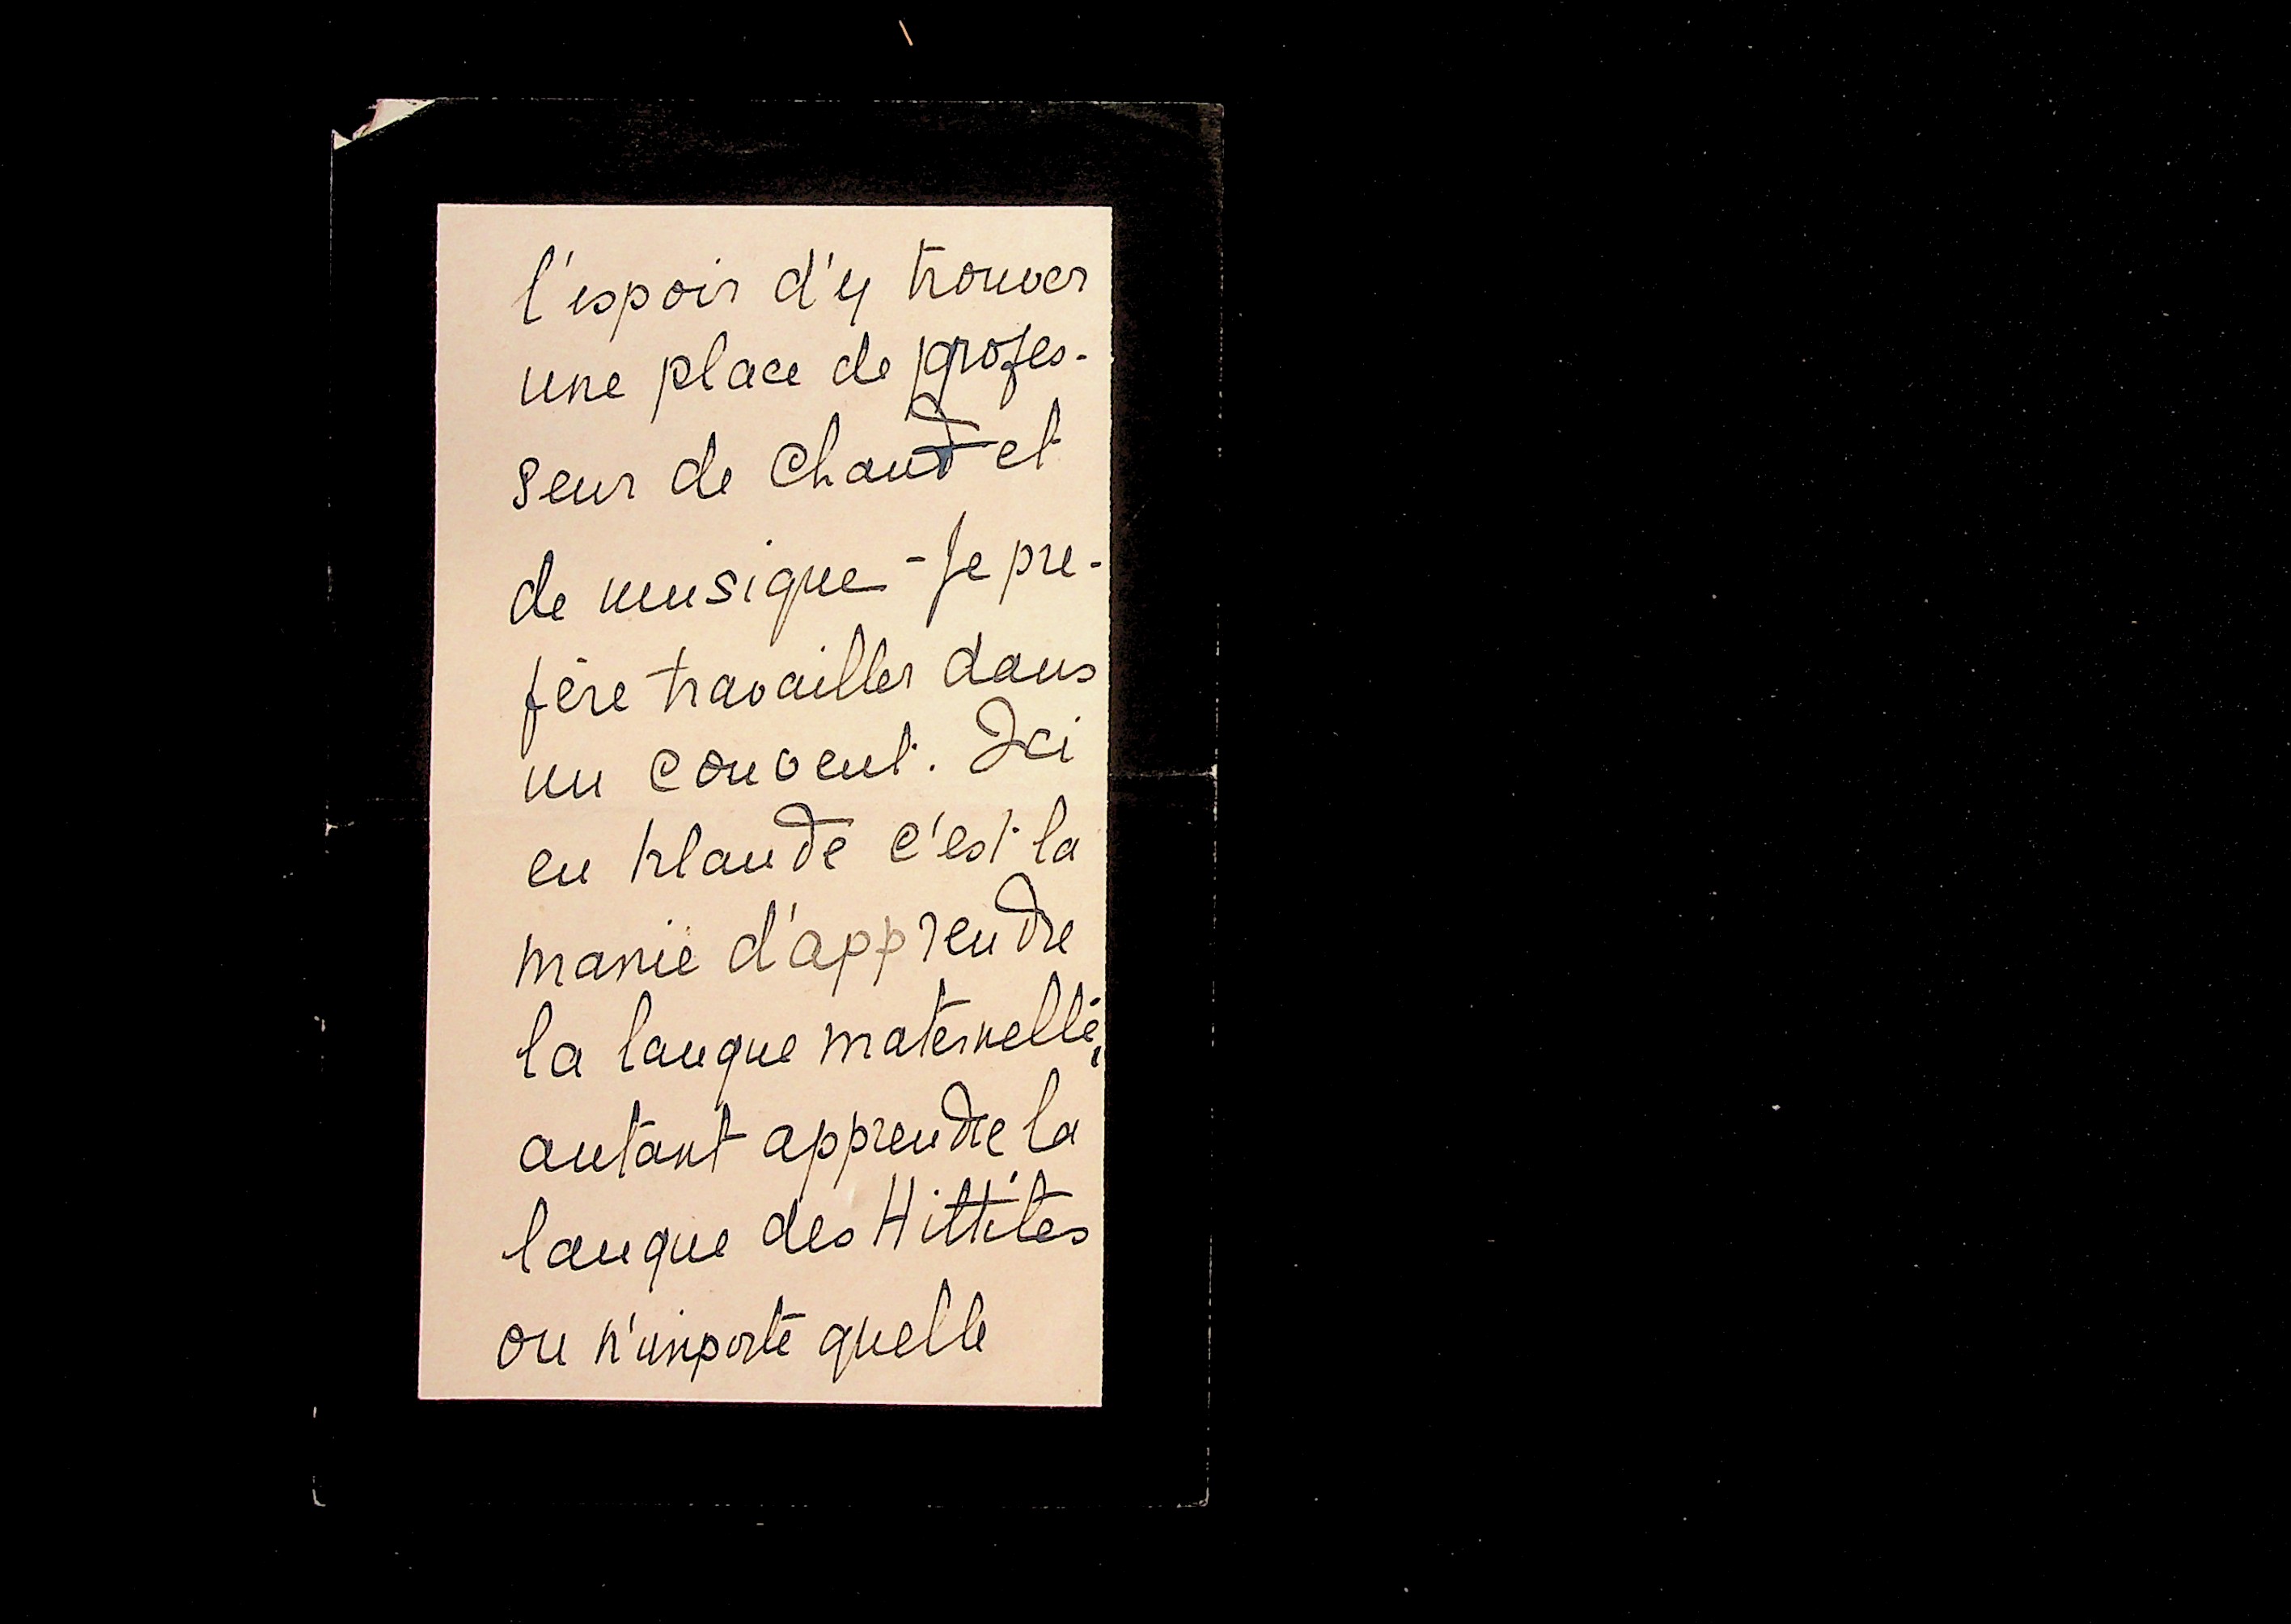 l'espoir d'y trouver
une place de profes-
seur de Chant et
de musique - Je pre-
fère travailler dans
un couvent. Ici
en Irlande c'est la
manie d'apprendre
la langue maternelle,
autant apprendre la
langue des Hittites
ou n'importe quelle